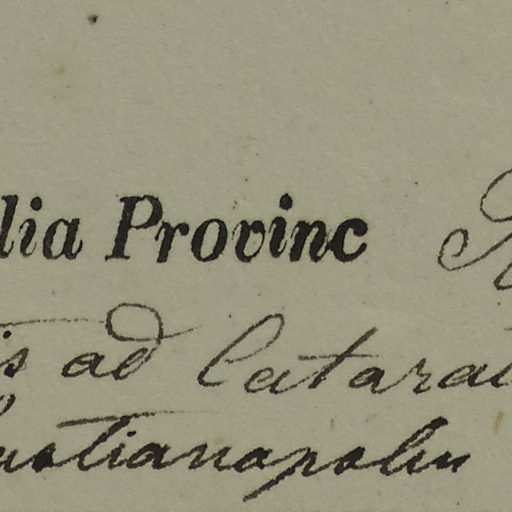 lia Provinc
is ad Catara
ustianopolim